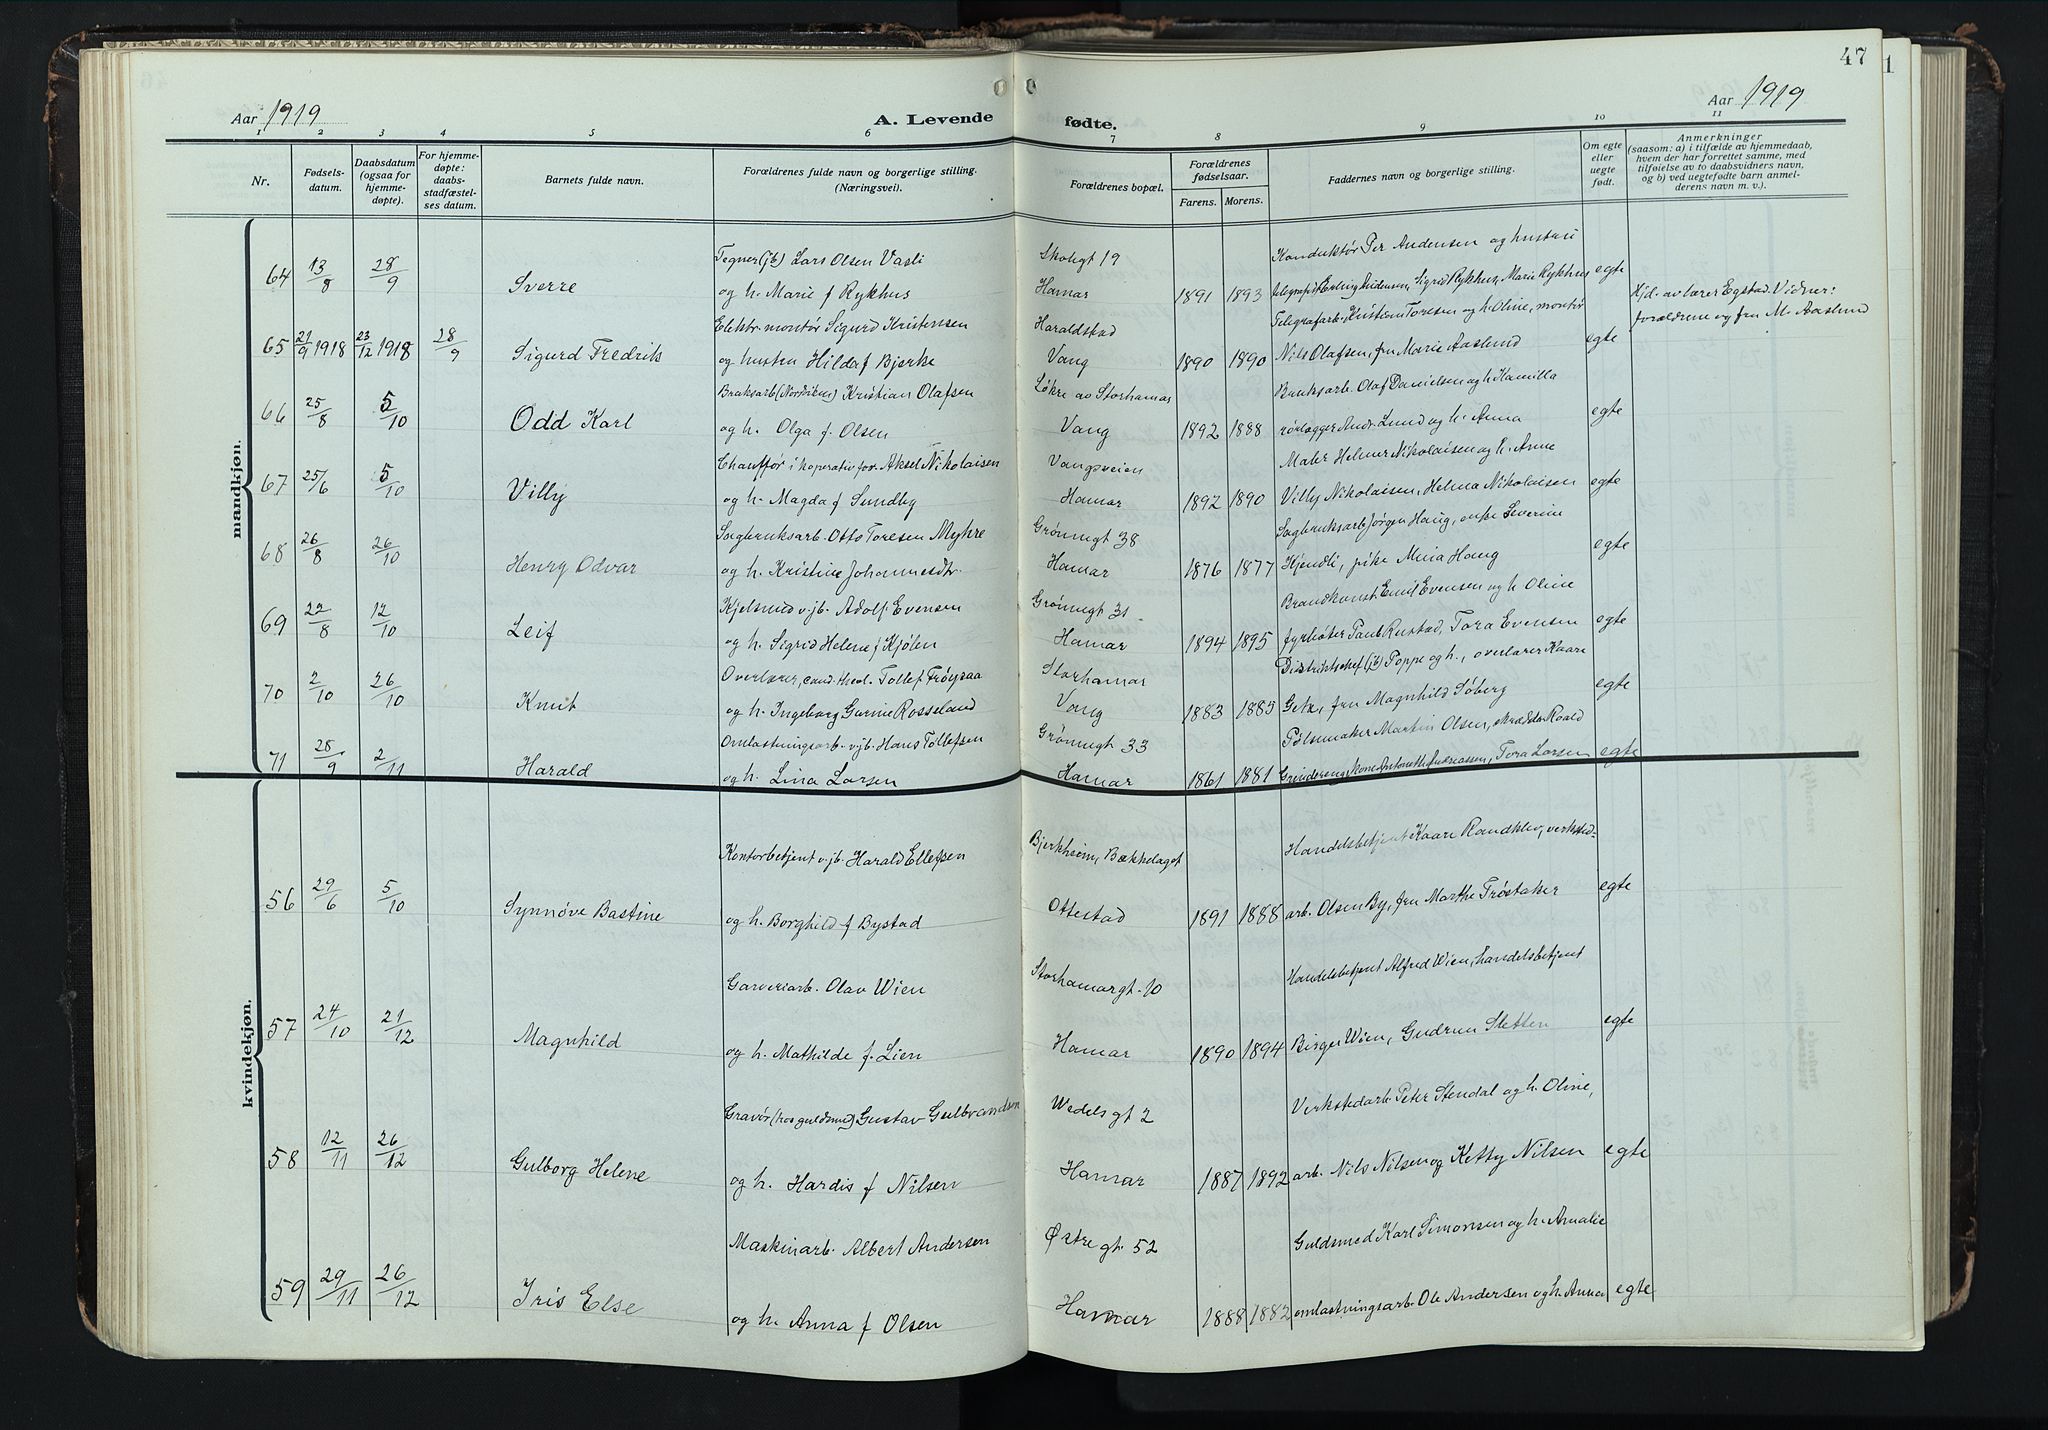 47
1
Aar 1919
A. Levende
fødte.
Aar 1919
1 2 3 4 5 6 7 8 9 10 11
Nr.
Fødselsdatum.
Daabsdatum (ogsaa for hjemmedøpte).
For hjemmedøpte: daabsstadfæstelses datum.
Barnets fulde navn.
Forældrenes fulde navn og borgerlige stilling. (Næringsvei).
Forældrenes bopæl.
Forældrenes fødselsaar.
Farens. Morens.
Faddernes navn og borgerlige stilling.
Om egte eller uegte født.
Anmerkninger (saasom: a) i tilfælde av hjemmedaab, hvem der har forrettet samme, med tilføielse av to daabsvidners navn, og b) ved uegtefødte barn anmelderens navn m. v.).
mandkjøn.
Tegner (jb) Lars Olsen Vasli Skolegt 19 Konduktør Per Andersen og hustru
64 13/8 28/9 Sverre og h. Marie f Rykhus Hamar 1891 1893 Sigrid Rykhus, Marie Rykhus egte
Elektr. montør Sigurd Kristensen Haraldstad Telegrafarb. Kristian Toresen og h. Oline, montør Hjd. av lærer Egstad. Vidner:
65 21/9 1918 23/12 1918 28/9 Sigurd Fredrik og hustru Hilda f Bjerke Vang 1890 1890 Nils Olafsen, fru Marie Aaslund egte forældrene og fru M. Aaslund
Bruksarb (Nordviens) Kristian Olafsen Løkre av Storhamar Bruksarb. Olaf Danielsen og h. Kamilla
66 25/8 5/10 Odd Karl og h. Olga f. Olsen Vang 1892 1888 rørlægger Andr. Lund og h. Anna egte
Chauffør i koperativ for. Aksel Nikolaisen Vangsveien Maler Helmer Nikolaisen og h. Anne
67 25/6 5/10 Villy og h. Magda f Sundby Hamar 1892 1890 Villy Nikolaisen, Helma Nikolaisen egte
Sagbruksarb. Otto Toresen Myhre Grønnegt 38 Sagbruksarb Jørgen Haug, enke Severine
68 26/8 26/10 Henry Odvar og h. Kristine Johannesdtr. Hamar 1876 1877 Hjendli, pike Mina Haug egte
Kjelsmed v. jb. Adolf Evensen Grønnegt 31 Brandkonst. Emil Evensen og h Oline
69 22/8 12/10 Leif og h. Sigrid Helene f Kjølen Hamar 1894 1895 fyrbøter Paul Rustad, Tora Evensen egte
Overlærer, cand. theol. Tollef Frøysaa Storhamar Distriktschef (jb) Poppe og h., overlærer Kaare
70 2/10 26/10 Knut og h. Ingeborg Gurine Rosseland Vang 1883 1885 Getz, fru Magnhild Søberg egte
Omlastningsarb. v. jb. Hans Tollefsen Grønnegt 33 Pølsemaker Martin Olsen, skrædder Roald
71 28/9 2/11 Harald og h. Lina Larsen Hamar 1861 1881 Grindereng, kone Antonette Andreassen, Tora Larsen egte
kvindekjøn.
Kontorbetjent v. jb. Harald Ellefsen Bjerkheim, Bækkelaget Handelsbetjent Kaare Randklev, verksted-
56 29/6 5/10 Synnøve Bastine og h. Borghild f Bystad Ottestad 1891 1888 arb. Olsen By, fru Marthe Trøstaker egte
Garveriarb. Olav Wien Storhamargt. 10 Handelsbetjent Alfred Wien, handelsbetjent
57 24/10 21/12 Magnhild og h. Mathilde f. Lien Hamar 1890 1894 Birger Wien, Gudrun Sletten egte
Gravør (hos guldsmed) Gustav Gulbrandsen Wedels gt 2 Verkstedarb. Peter Stendal og h. Oline,
58 12/11 26/12 Gulborg Helene og h. Hardis f Nilsen Hamar 1887 1892 arb. Nils Nilsen og Ketty Nilsen egte
Maskinarb. Albert Andersen Østre gt. 52 Guldsmed Karl Simonsen og h. Amalie
59 29/11 26/12 Iris Else og h. Anna f Olsen Hamar 1888 1882 omlastningsarb. Ole Andersen og h. Anna egte